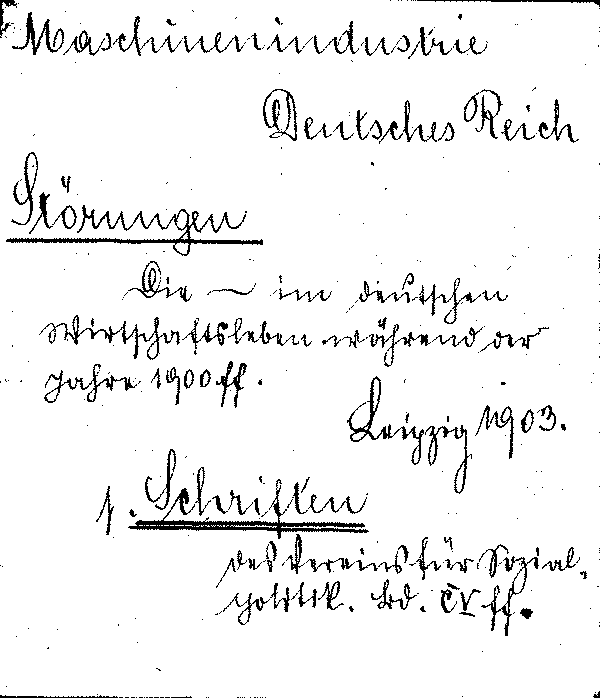 Maschinenindustrie
Deutsches Reich
Störungen
Die — im deutschen
Wirtschaftsleben während der
Jahre 1900 ff.
Leipzig 1903.
s. Schriften
des Vereins für Sozial-
politik. Bd. CV ff.